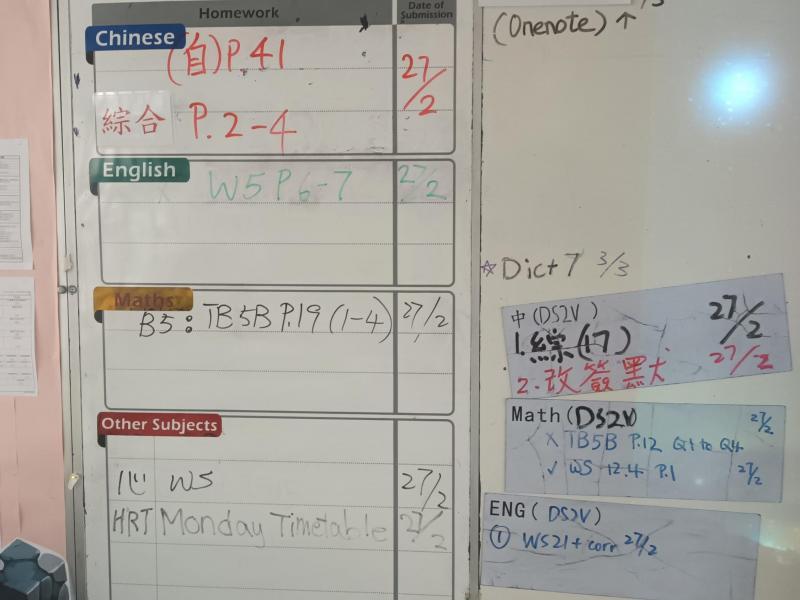 Homework
Date of Submission
Chinese
(自)P.41
27/2
綜合 P.2-4
English
W5 P6-7
27/2
Maths
B5: TB5B P.19 (1-4)
27/2
Other Subjects
心 WS
27/2
HRT Monday Timetable
27/2
(Onenote) ↑
☆ Dict 7 3/3
中(DS2V)
1.綜(17)
27/2
2.改簽黑大
27/2
Math(DS2V)
27/2
X TB5B P.12 Q1 to Q4
✓ WS 12.4 P.1
27/2
ENG(DS2V)
① WS21+corr 27/2